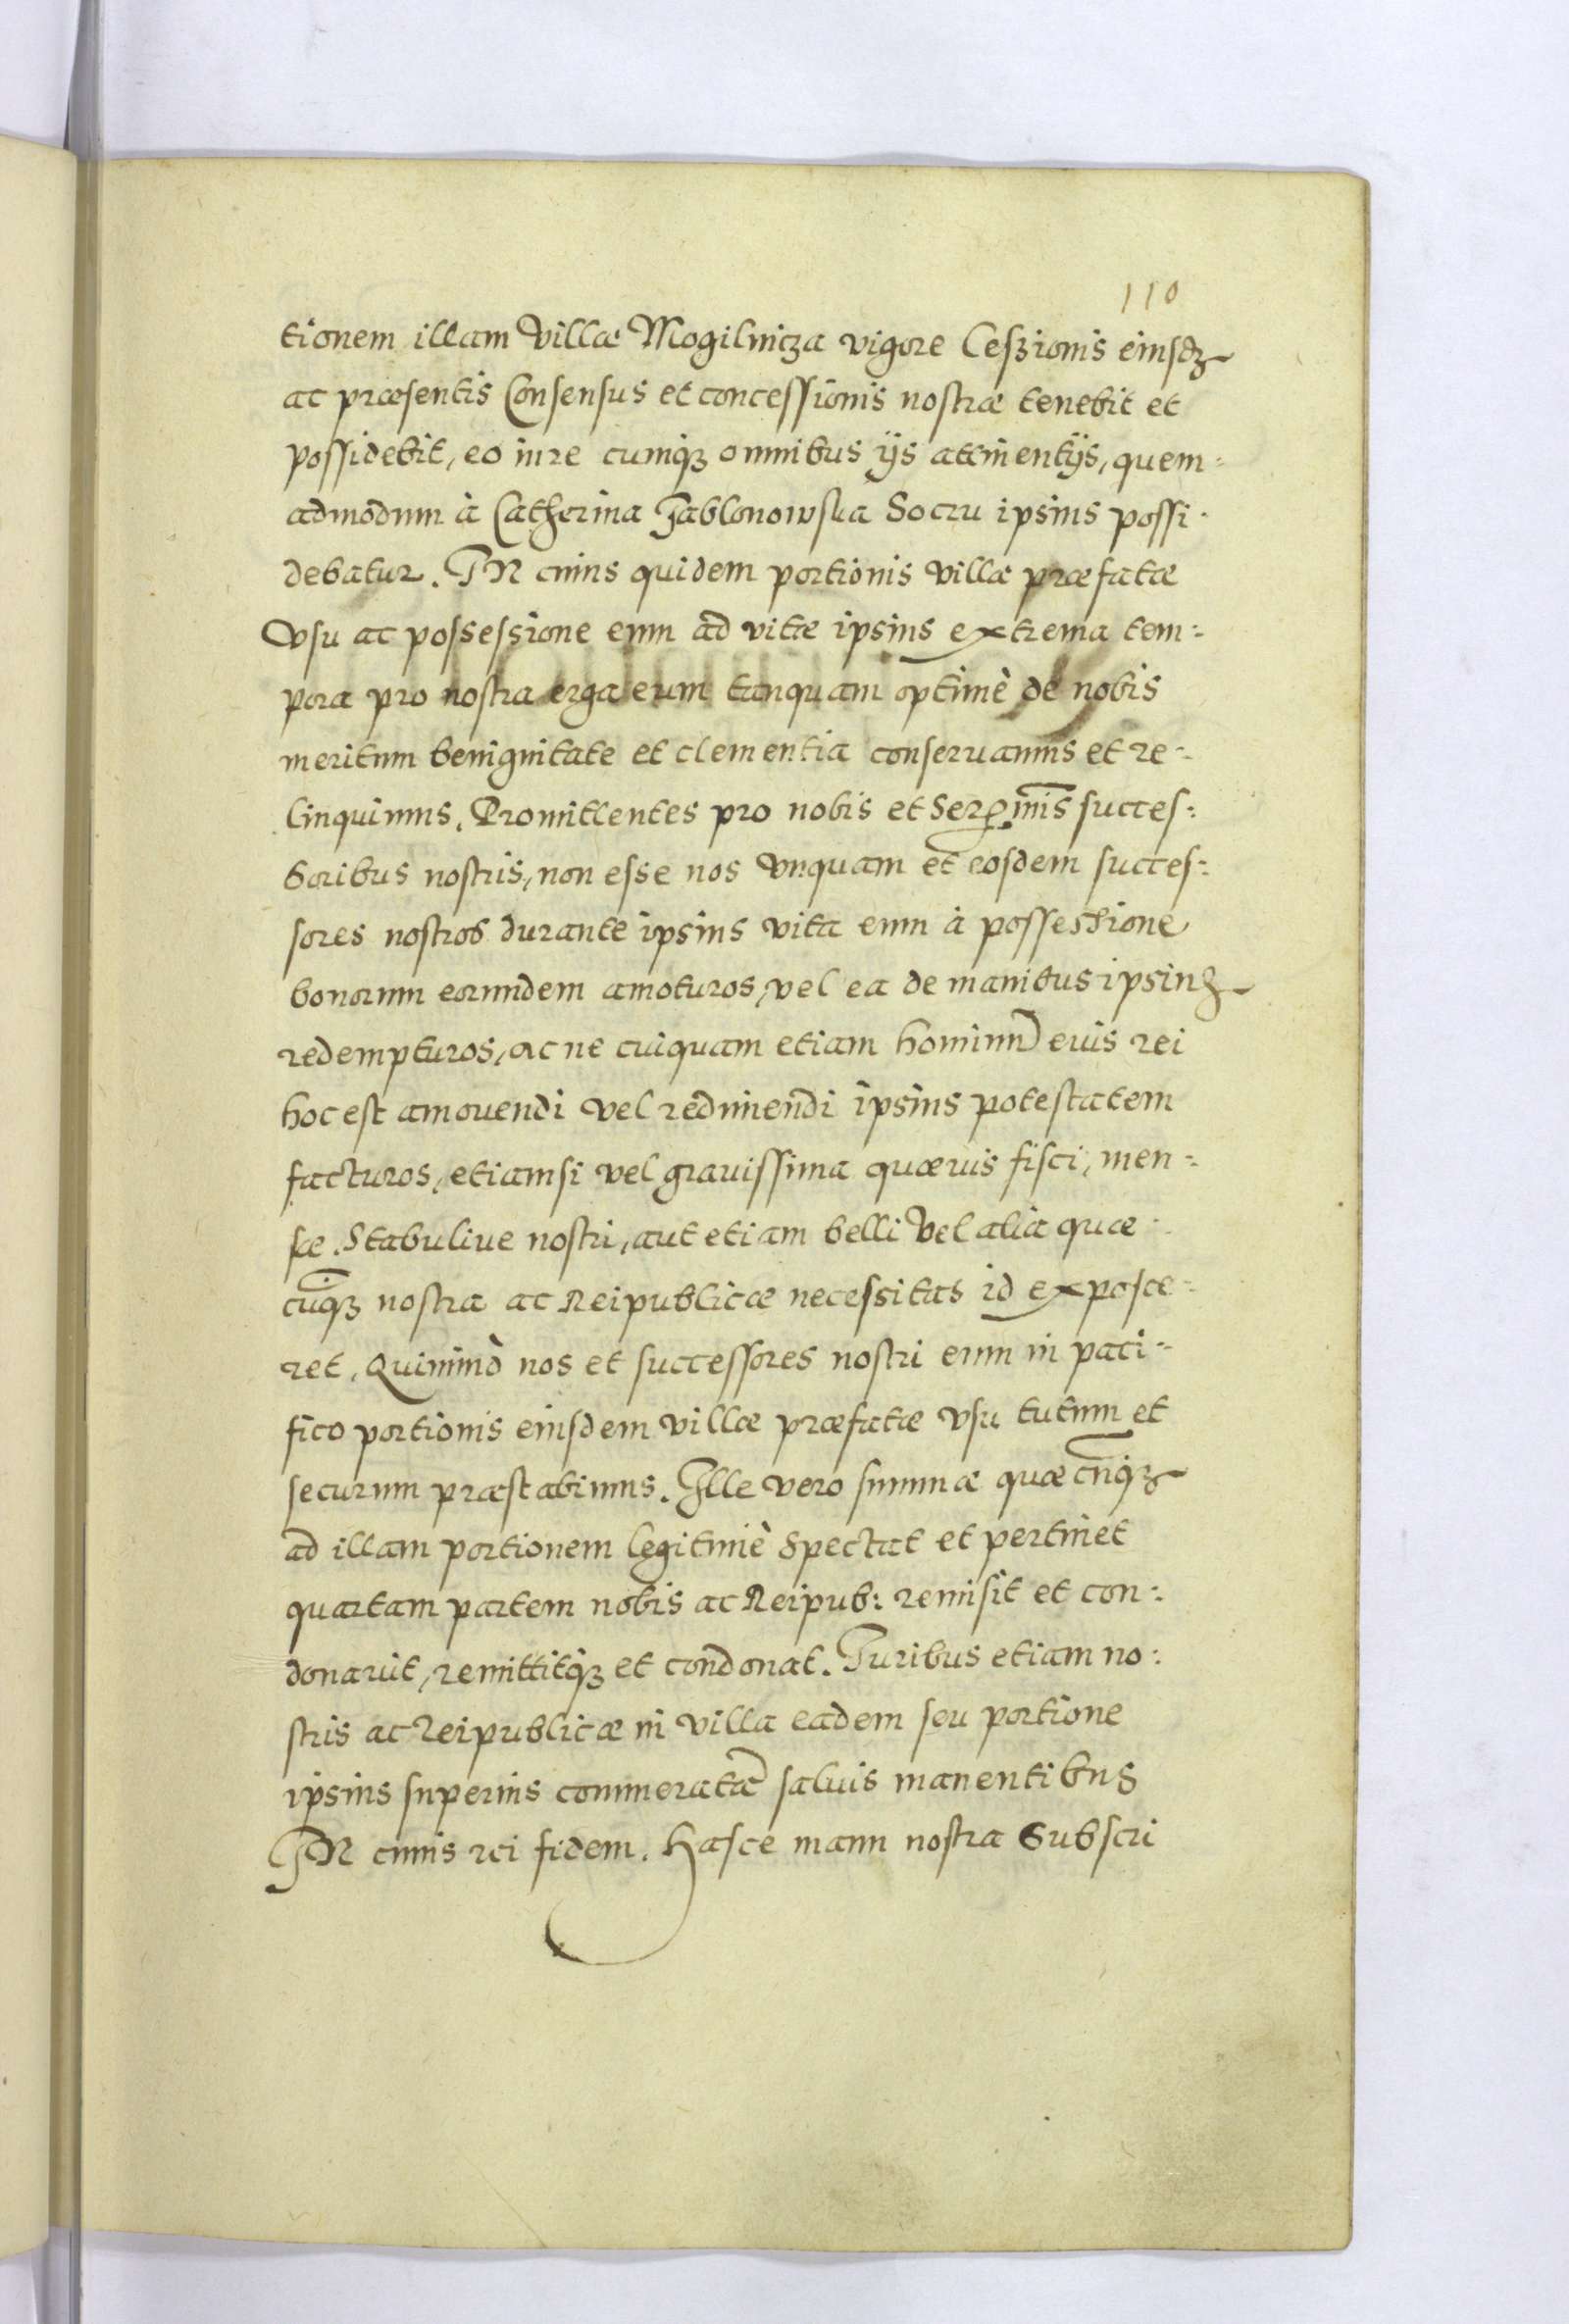 110
tionem illam Villæ Mogilnicza vigore Cessionis eiusdꝫ
ac præsentis Consensus et concessionis nostræ tenebit et
possidebit, eo iure cumqꝫ omnibus ijs attinentijs, quem-
admodum à Catherina Jablonowska Socru ipsius possi-
debatur. IN cuius quidem portionis villæ præfatæ
Vsu ac possessione eum ad vitæ ipsius extrema tem:
pora pro nostra erga eum tanquam optimè de nobis
meritum benignitate et clementia conseruamus et re-
linquimus. Promittentes pro nobis et Serenimis succes:
soribus nostris, non esse nos vnquam et eosdem succes:
sores nostros durante ipsius vita eum à possessione
bonorum eorundem amoturos, vel ea de manibus ipsius
redempturos, ac ne cuiquam etiam hominum eius rei
hoc est amouendi vel redimendi ipsius potestatem
facturos, etiamsi vel grauissima quæuis fisci, men-
sæ. Stabuliue nostri, aut etiam belli vel alia quæ-
cuqꝫ nostra ac Reipublicæ necessitas id exposce-
ret, Quinimò nos et successores nostri eum in paci-
fico portionis eiusdem villæ præfatæ vsu tutum et
securum præstabimus. Ille vero summæ quæ cunqꝫ
ad illam portionem legitimè spectat et pertinet
quartam partem nobis ac Reipub: remisit et con:
donauit, remittitqꝫ et condonat. Iuribus etiam no:
stris ac Reipublicæ in villa eadem seu portione
ipsius superius commeratæ saluis manentibus
IN cuius rei fidem. Hasce manu nostra Subscri